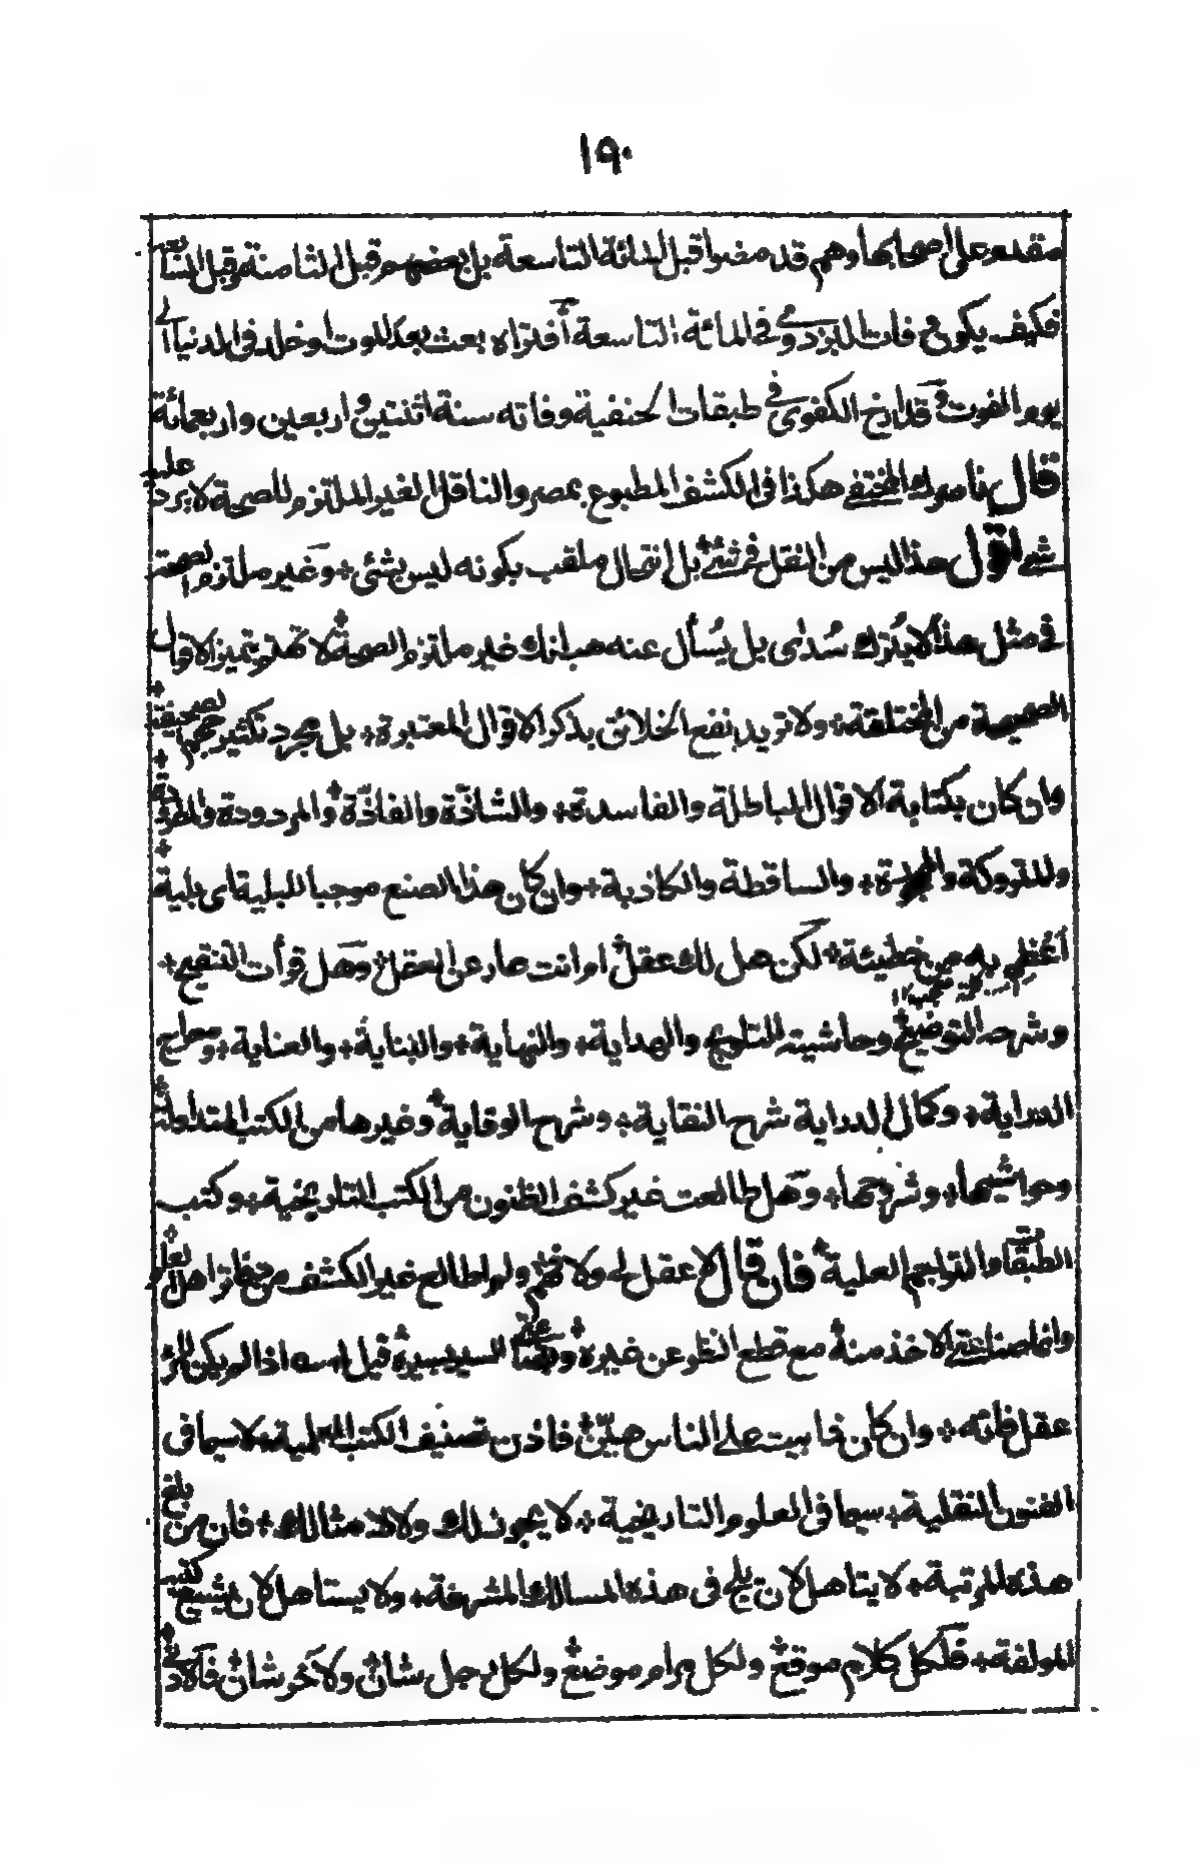 ١٩٠
مقدم على اصحابها وهم قد مضوا قبل المائة التاسعة بل بعضهم قبل الثامنة وقبل السابعة
فكيف يكون وفات البزدوى فى المائة التاسعة أفتراه بعث بعد الموت او خلد فى الدنيا الى
يوم الفوت وقد ارخ الكفوى فى طبقات الحنفية وفاته سنة اثنتين واربعين واربعمائة
قال ناصرك المختفى هكذا فى الكشف المطبوع بمصر والناقل الغير الملتزم للصحة لا يرد عليه
شئ اقول هذا ليس من النقل فى شئ بل انتحال ملقب بكونه ليس بشئ + وغير ملتزم الصحة
فى مثل هذا لا يُترك سُدًى بل يُسأل عنه هب انك غير ملتزم الصحة + لا تهتم بتميز الاقوال
الصحيحة من المختلقة + ولا تريد نفع الخلائق بذكر الاقوال المعتبرة + بل مجرد تكثير حجم الصحيفة +
وان كان بكتابة الاقوال الباطلة والفاسدة + والشاذّة والفاذّة + والمردودة والمطرودة +
والمتروكة + والساقطة والكاذبة + وان كان هذا الصنع موجبا لبلية اى بلية +
أعظِم به من خطيئة + لكن هل لك عقل + ام انت عار عن العقل + وهل قرأت التنقيح +
وشرحه التوضيح وحاشيته التلويح + والهداية + والنهاية + والبناية + والعناية + ومعراج
الدراية + وكمال الدراية شرح النقاية + وشرح الوقاية + وغيرها من الكتب المتداولة +
وحواشيها + وشروحها + وهل طالعت غير كشف الظنون من الكتب التاريخية + وكتب
الطبقات والتراجم العلية + فان قال لا عقل لى ولا فهم + ولم اطالع غير الكشف من دفاتر اهل العلم +
وانما صناعتى الاخذ منه + مع قطع النظر عن غيره + السير بسيره + قيل له اذا لم يكن لك
عقل فاته + وان كان خاسيت على الناس هيّن + فاذن تصنيف الكتب العلمية + لا سيما فى
الفنون النقلية + سيما فى العلوم التاريخية + لا يجوز لك ولا لامثالك + فان من بلغ
هذه المرتبة + لا يتاهل لان يلج فى هذه المسالك المشرفة + ولا يستاهل لان يشيع كتبه
المولفة + فلكل كلام موقع + ولكل مرام موضع + ولكل رجل شان + ولآخر شان + فالادنى